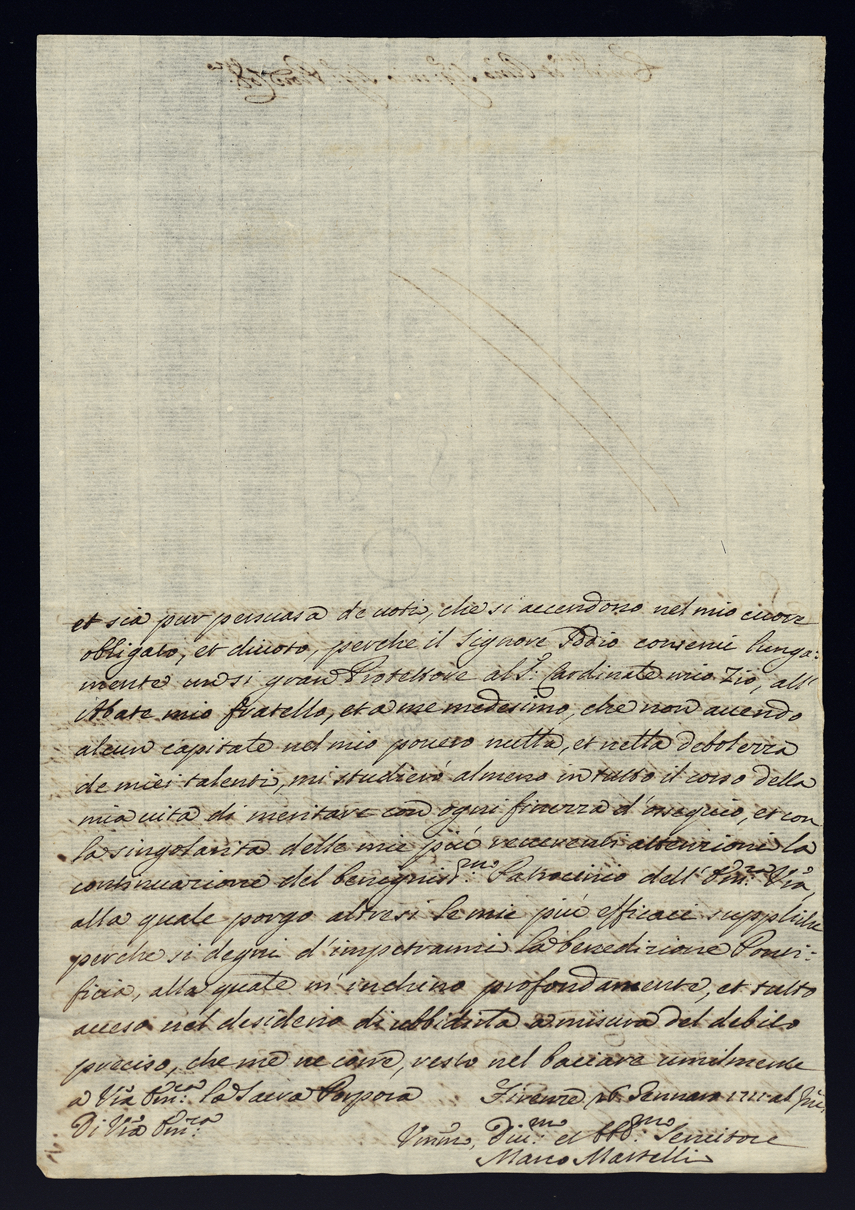 et sia pur persuasa de uoti, che si accendono nel mio cuore
obligato, et diuoto, perche il Signore Iddio conserui lunga:
mente un si gran Protettore al S.r Cardinale mio Zio, all'
Abate mio fratello, et a me medesimo, che non auendo
alcun capitale nel mio pouero nulla, et nella debolezza
de miei talenti, mi studierò almeno in tutto il corso della
mia uita di meritare con ogni finezza d'ossequio, et con
la singolarità delle mie più reuerenti attenzioni la
continuazione del benigniss.mo Patrocinio dell' Em.za V̄ra,
alla quale porgo altresi le mie più efficaci suppliche
perche si degni d'impetrarmi la benedizione Ponti:
ficia, alla quale m'inchino profondamente, et tutto
acceso nel desiderio di ubbidirla a misura del debito
preciso, che me ne corre, resto nel baciare umilmente
a V̄ra Em.za la Sacra Porpora Firenze 26. Gennaro
Di V̄ra Em.za
Vmm̄o, Diu.mo et Obb.mo Seruitore
Marco Martelli